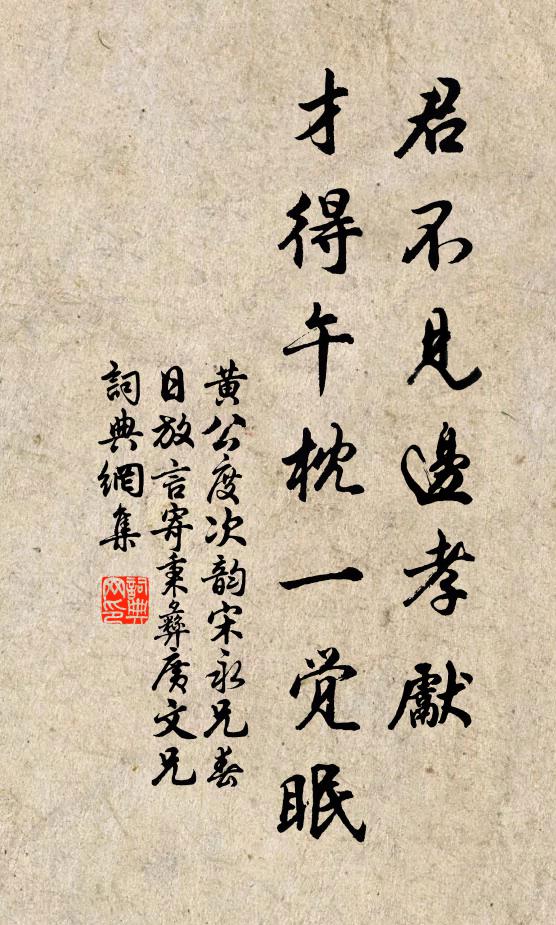 君不見邊孝獻
才得午枕一覺眠
黃公度次韵宋永兄春
日放言寄秉彝廣文兄
詞典網集
詞典網印